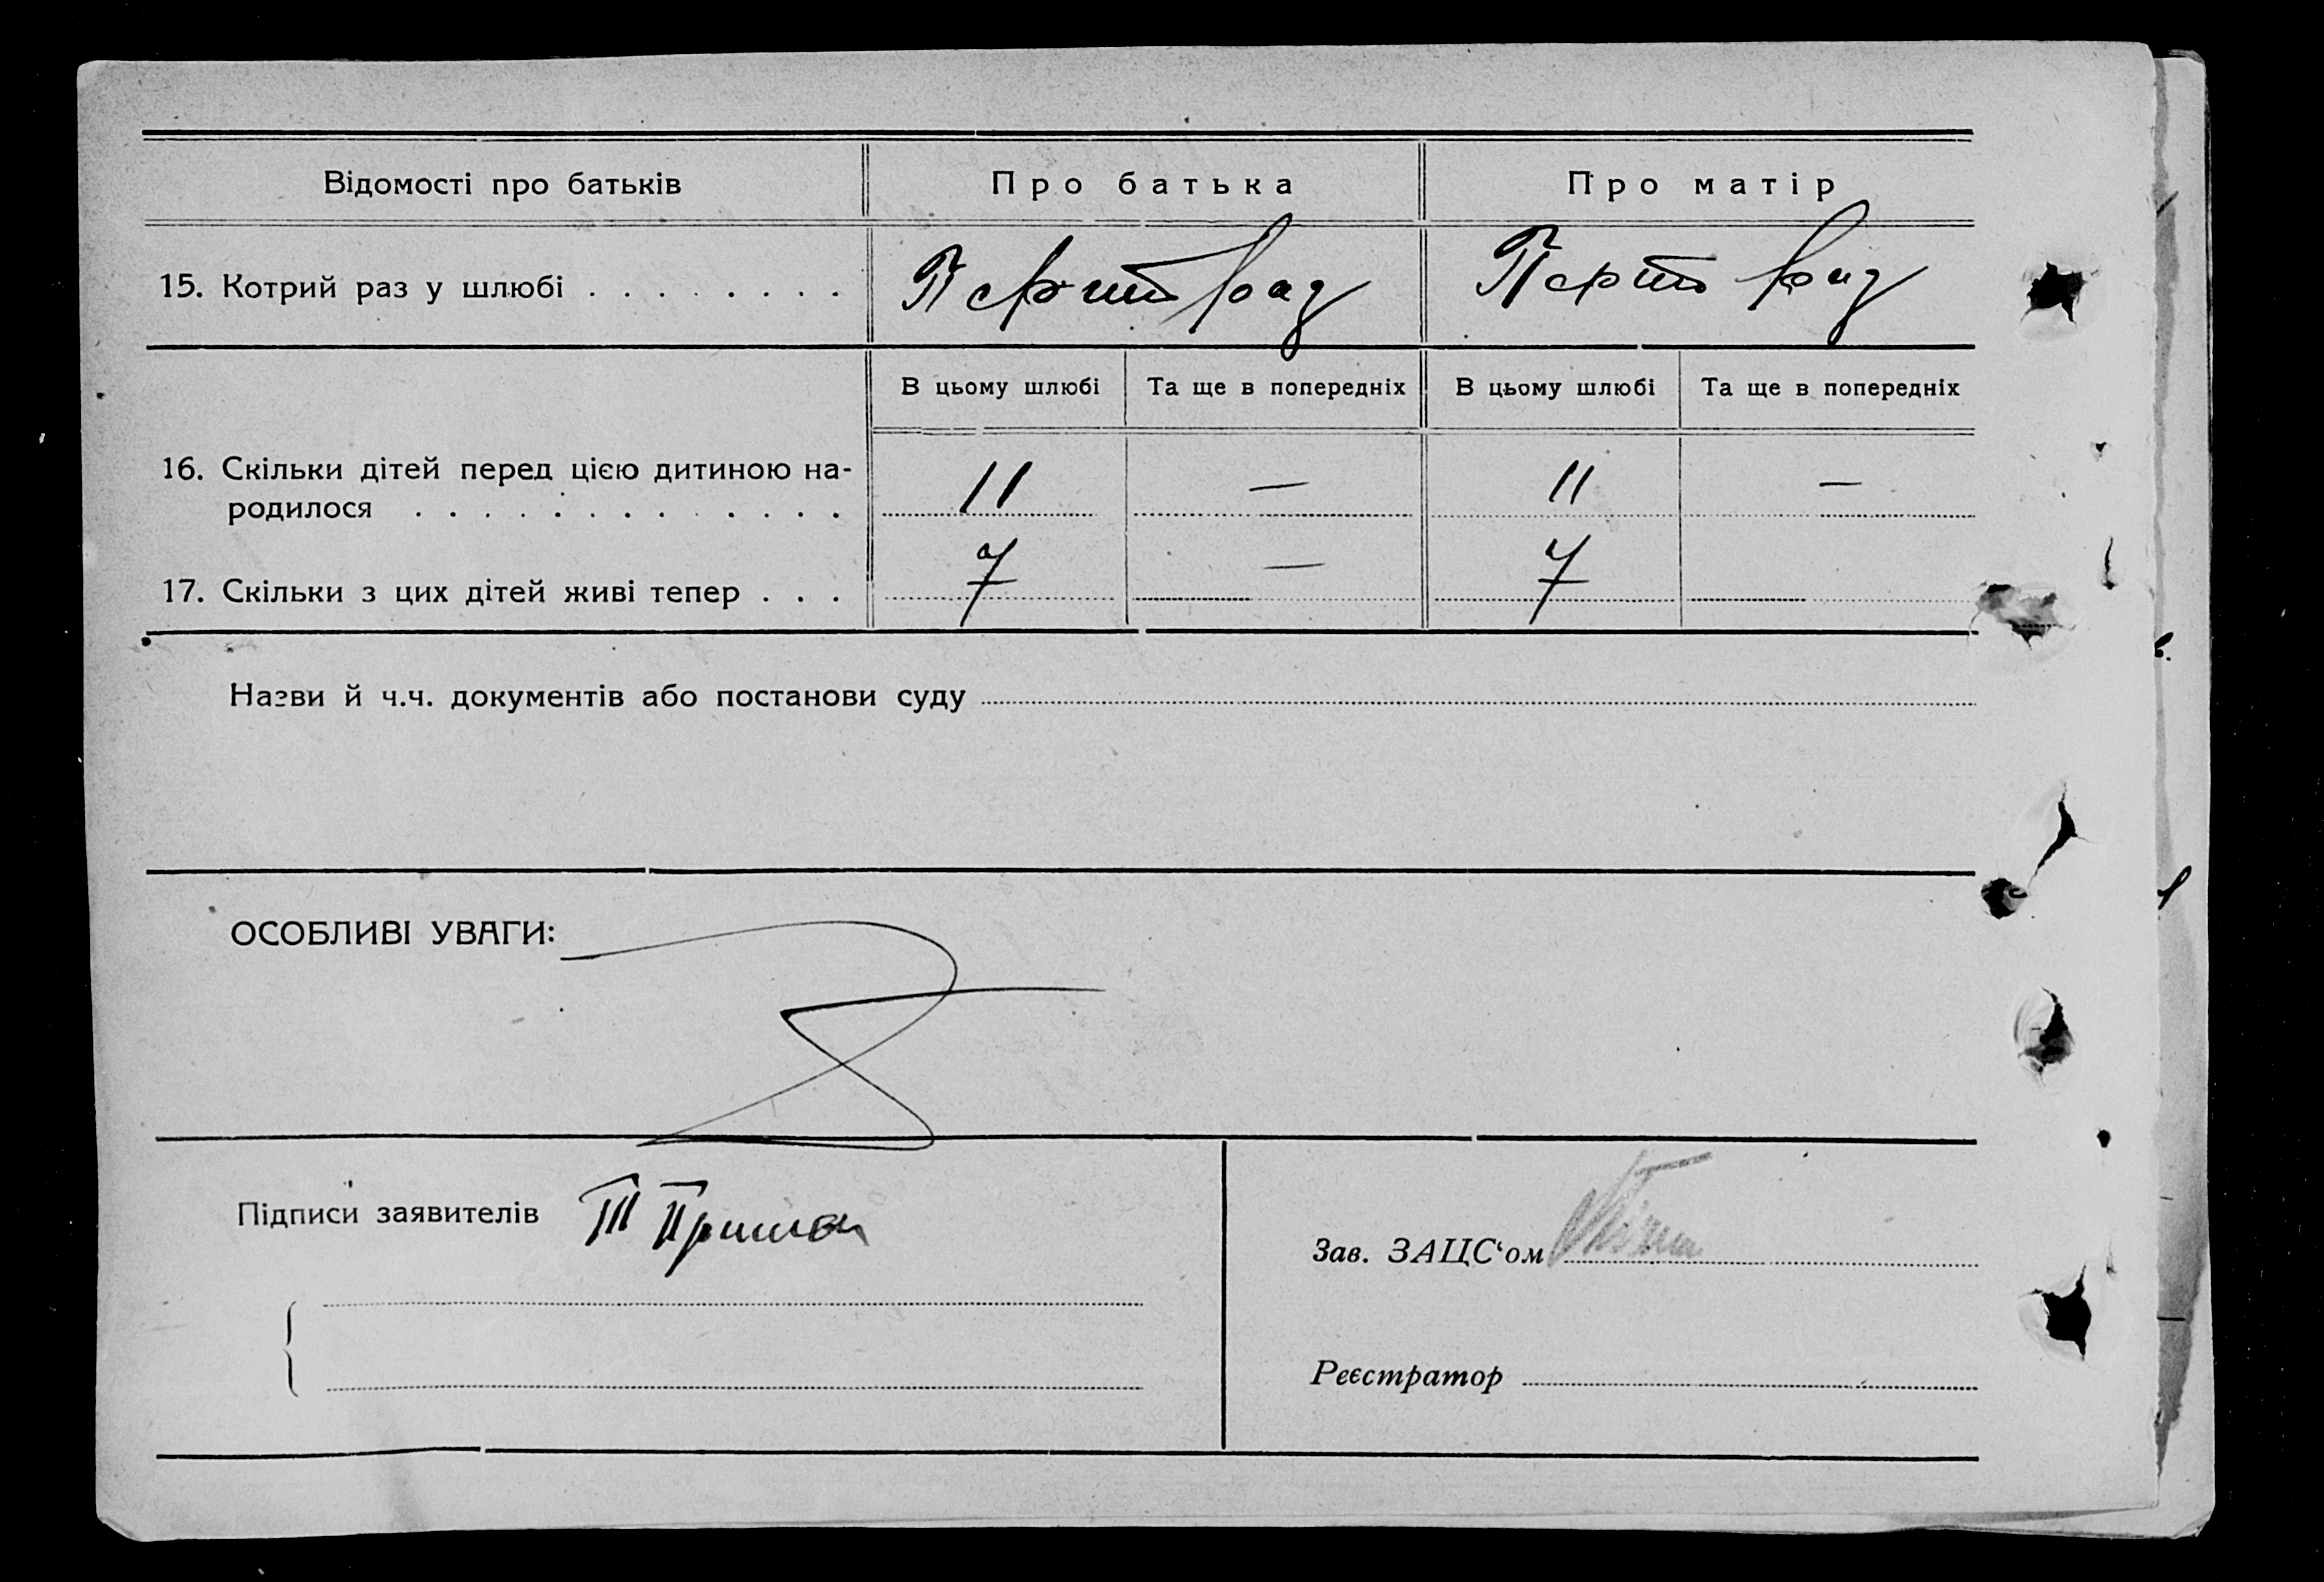 Відомості про батьків Про батька Про матір
15. Котрий раз у шлюбі . . . . . . . . Перший раз Перший раз
В цьому шлюбі Та ще в попередніх В цьому шлюбі Та ще в попередніх
16. Скільки дітей перед цією дитиною на-
родилося . . . . . . . . . . . . . 11 — 11 —
17. Скільки з цих дітей живі тепер . . . 7 — 7
Назви й ч.ч. документів або постанови суду
ОСОБЛИВІ УВАГИ:
Підписи заявителів
Зав. ЗАЦС‘ом
Реєстратор